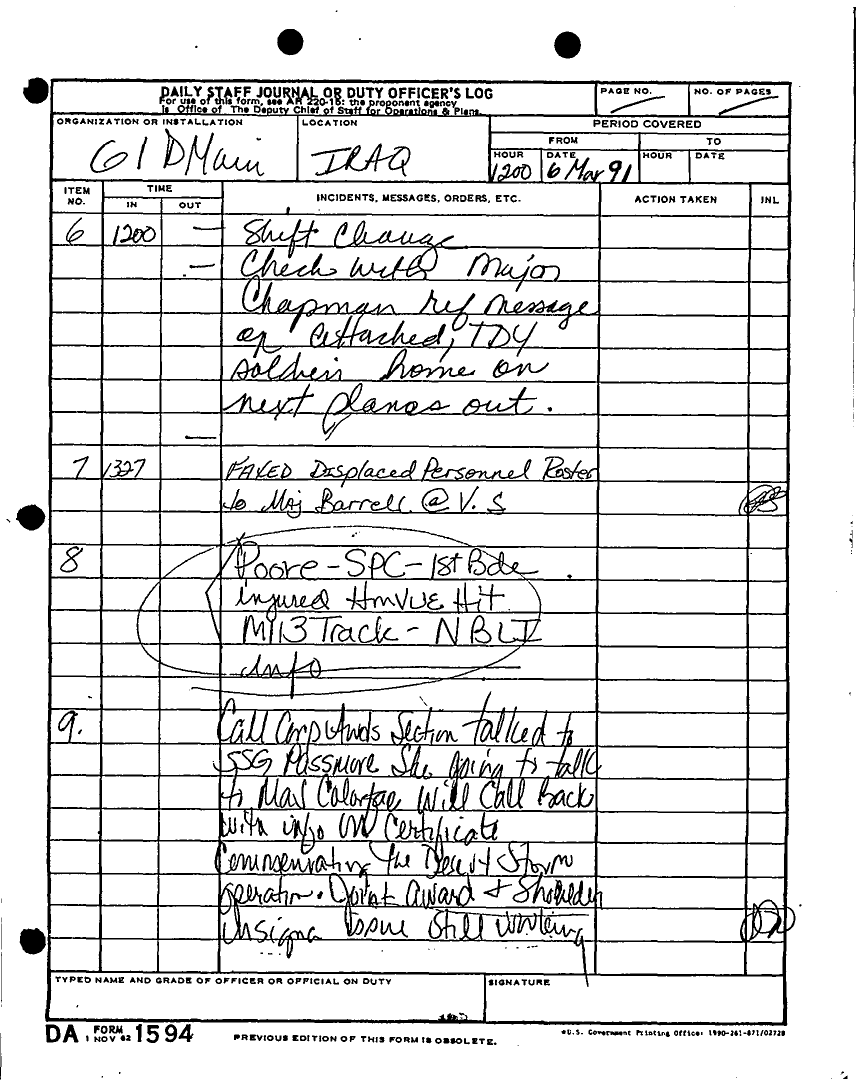 DAILY STAFF JOURNAL OR DUTY OFFICER'S LOG
For use of this form, see AR 220-15: the proponent agency
is Office of The Deputy Chief of Staff for Operations & Plans.
PAGE NO.
NO. OF PAGES
ORGANIZATION OR INSTALLATION
G1 DMain
LOCATION
IRAQ
PERIOD COVERED
FROM TO
HOUR DATE HOUR DATE
1200 6 Mar 91
ITEM NO. TIME IN OUT INCIDENTS, MESSAGES, ORDERS, ETC. ACTION TAKEN INL
6 1200 — Shift Change
— Check with Major
Chapman ref message
on attached, TDY
soldiers home on
next planes out.
—
7 1327 FAXED Displaced Personnel Roster
to Maj Barrell @ V. S
8 Poore-SPC-1st Bde
injured HmVVE Hit
M113 Track - NBLI
info
9. Call Corp Awds Section talked to
SSG Passmore She going to talk
to Will Call Back
with info on Certificate
the Desert Storm
operation. Joint award + Shoulder
issue still working
TYPED NAME AND GRADE OF OFFICER OR OFFICIAL ON DUTY
SIGNATURE
DA FORM 1594
1 NOV 62
PREVIOUS EDITION OF THIS FORM IS OBSOLETE.
*U.S. Government Printing Office: 1990-261-871/02728